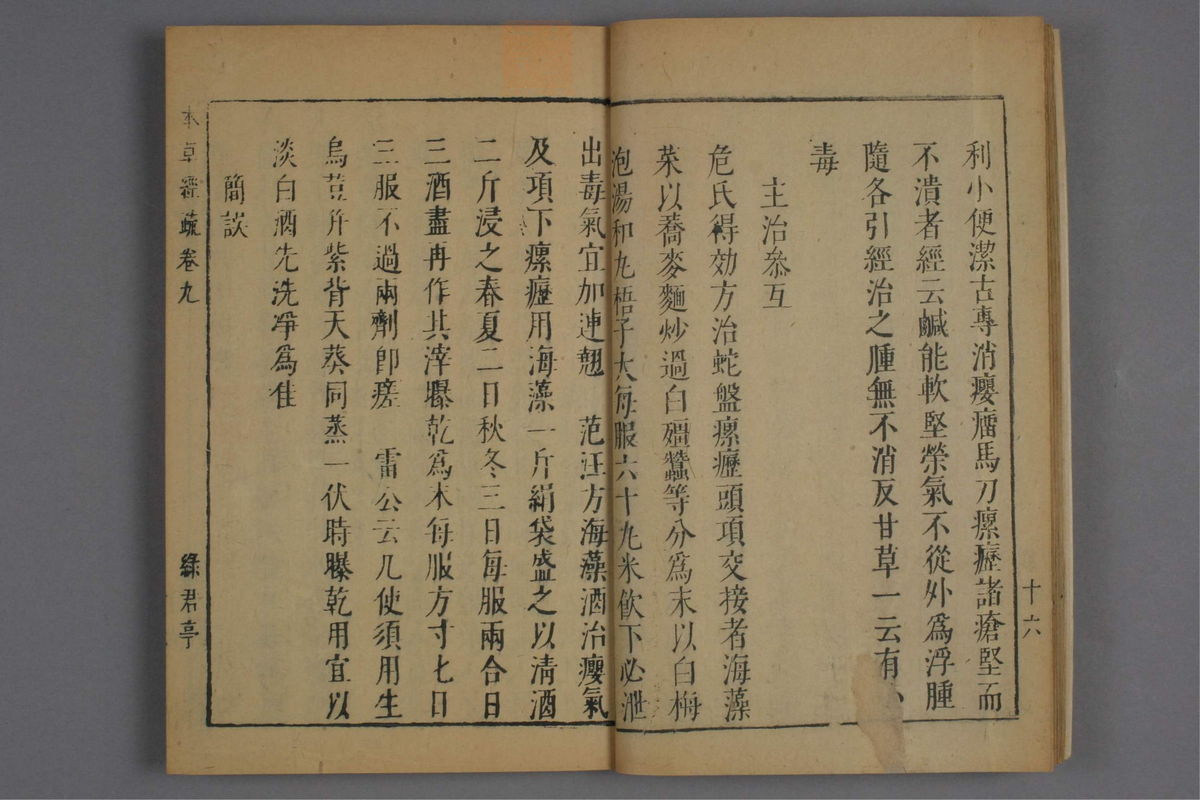 十六
利小便潔古專消癭瘤馬刀瘰癧諸瘡堅而
不潰者經云鹹能軟堅榮氣不從外爲浮腫
隨各引經治之腫無不消反甘草一云有小
毒
主治叅互
危氏得効方治蛇盤瘰癧頭項交接者海藻
菜以蕎麥麵炒過白殭蠶等分爲末以白梅
泡湯和丸梧子大每服六十丸米飲下必泄
出毒氣宜加連翹 范汪方海藻酒治癭氣
及項下瘰癧用海藻一斤絹袋盛之以清酒
二斤浸之春夏二日秋冬三日每服兩合日
三酒盡再作其滓曝乾爲末每服方寸七日
三服不過兩劑卽瘥 雷公云凡使須用生
烏荳幷紫背天葵同蒸一伏時曝乾用宜以
淡白酒先洗淨爲佳
簡誤
本草經疏卷九 綠君亭